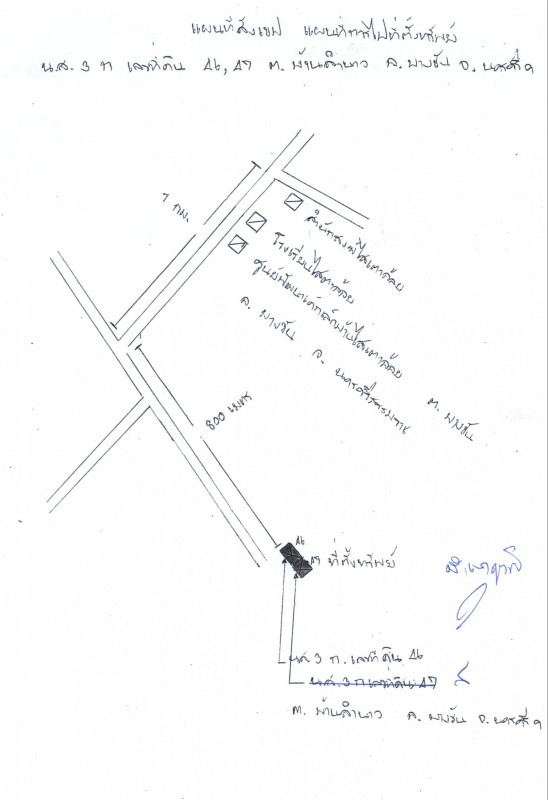 แผนที่สังเขป แผนที่การไปที่ตั้งทรัพย์
น.ส. 3 ก เลขที่ดิน 46, 47 ต. บ้านลำนาว อ. บางขัน จ. นครศรีฯ
7 กม.
สำนักสงฆ์ไสเตาอ้อย
โรงเรียนไสเตาอ้อย
ศูนย์พัฒนาเด็กเล็กบ้านไสเตาอ้อย ต. บางขัน
อ. บางขัน จ. นครศรีธรรมราช
800 เมตร
46
47 ที่ตั้งทรัพย์
น.ส. 3 ก. เลขที่ดิน 46
น.ส. 3 ก เลขที่ดิน 47
ต. บ้านลำนาว อ. บางขัน จ. นครศรีฯ